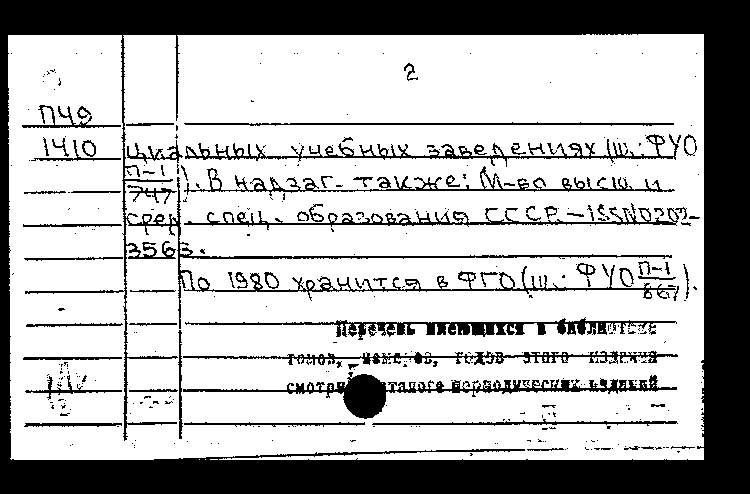 2
П49
1410 циальных учебных заведениях (ш.: ФУО
П-1/747). В надзаг. также: М-во высш. и
сред. спец. образования СССР. - ISSN 0202-
3563.
По 1980 хранится в ФГО (ш.: ФУО П-1/867).
Перечень имеющихся в библиотеке
томов, номеров, годов этого издания
смотри каталоге периодических изданий